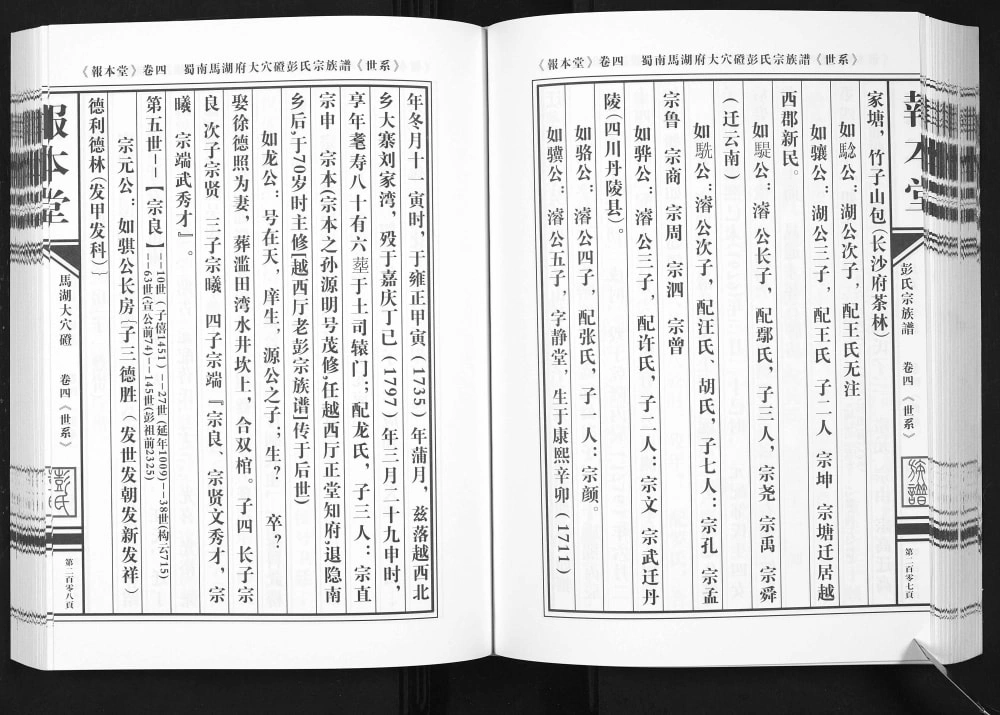 《報本堂》卷四　蜀南馬湖府大穴磴彭氏宗族譜《世系》
彭氏宗族譜　卷四《世系》
第二百零七頁
家塘，竹子山包(长沙府茶林)
如騐公：湖公次子，配王氏无注
如骧公：湖公三子，配王氏 子二人 宗坤 宗塘迁居越
西郡新民。
如騠公：濬 公长子，配鄢氏，子三人，宗尧 宗禹 宗舜
(迁云南)
如駪公：濬公次子，配汪氏、胡氏，子七人：宗孔 宗孟
宗鲁 宗商 宗周 宗泗 宗曾
如骅公：濬公三子，配许氏，子二人：宗文 宗武迁丹
陵(四川丹陵县)。
如骆公：濬公四子，配张氏，子一人：宗颜。
如骥公：濬公五子，字静堂，生于康熙辛卯(1711)
《報本堂》卷四　蜀南馬湖府大穴磴彭氏宗族譜《世系》
年冬月十一寅时，于雍正甲寅(1735)年蒲月，兹落越西北
乡大寨刘家湾，殁于嘉庆丁己(1797)年三月二十九申时，
享年耄寿八十有六塟于土司辕门；配龙氏，子三人：宗直
宗申　宗本(宗本之孙源明号茂修,任越西厅正堂知府,退隐南
乡后,于70岁时主修[越西厅老彭宗族谱]传于后世)
如龙公：号在天，庠生，源公之子；生?　卒?
娶徐德照为妻，葬滥田湾水井坎上，合双棺。子四 长子宗
良 次子宗贤 三子宗曦　四子宗端『宗良、宗贤文秀才，宗
曦　宗端武秀才』。
第五世--【宗良】--10世(子僖1451)--27世(延年1009)--38世(构云715)
--63世(宣公前74)--145世(彭祖前2325)
宗元公：如骐公长房[子三德胜(发世发朝发发新发祥)
德利德林(发甲发科)]
報本堂
馬湖大穴磴　卷四《世系》
彭氏
第二百零八頁